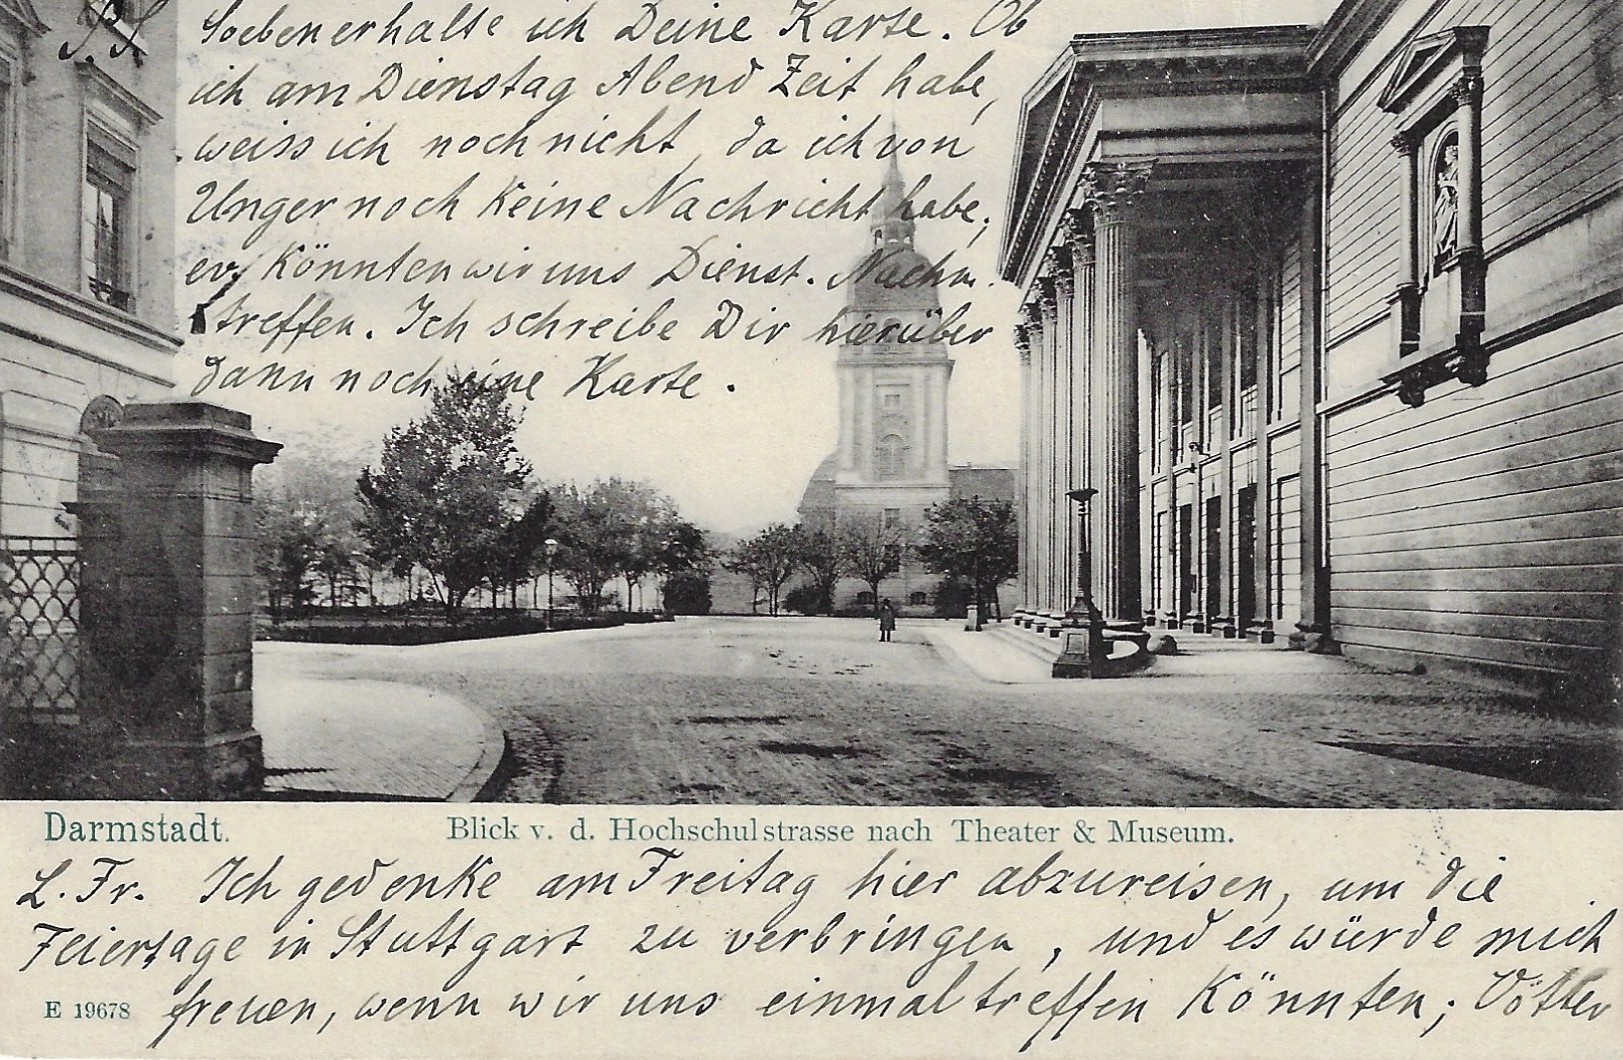 P.S. Soeben erhalte ich Deine Karte. Ob
ich am Dienstag Abend Zeit habe,
weiss ich noch nicht, da ich von
Unger noch keine Nachricht habe,
ev. könnten wir uns Dienst. Nachm.
treffen. Ich schreibe Dir hierüber
dann noch eine Karte.
Darmstadt. Blick v. d. Hochschulstrasse nach Theater & Museum.
L. Fr. Ich gedenke am Freitag hier abzureisen, um die
Feiertage in Stuttgart zu verbringen, und es würde mich
E 19678 freuen, wenn wir uns einmal treffen könnten; Vötter